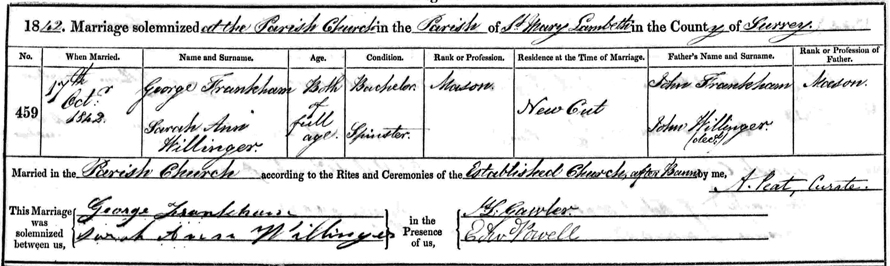 1842. Marriage solemnized at the Parish Church in the Parish of St Mary Lambeth in the County of Surrey
No. When Married. Name and Surname. Age. Condition. Rank or Profession. Residence at the Time of Marriage. Father's Name and Surname. Rank or Profession of Father.
459 17th Octr 1842. George Frankham Both of full age. Bachelor. Mason. New Cut John Frankham Mason.
Sarah Ann Willinger. Spinster. John Willinger.
Married in the Parish Church according to the Rites and Ceremonies of the Established Church, after Banns by me,
A. Peat, Curate.
This Marriage was solemnized between us, George Frankham in the Presence of us, Cawler.
Sarah Ann Willinger Edw Powell